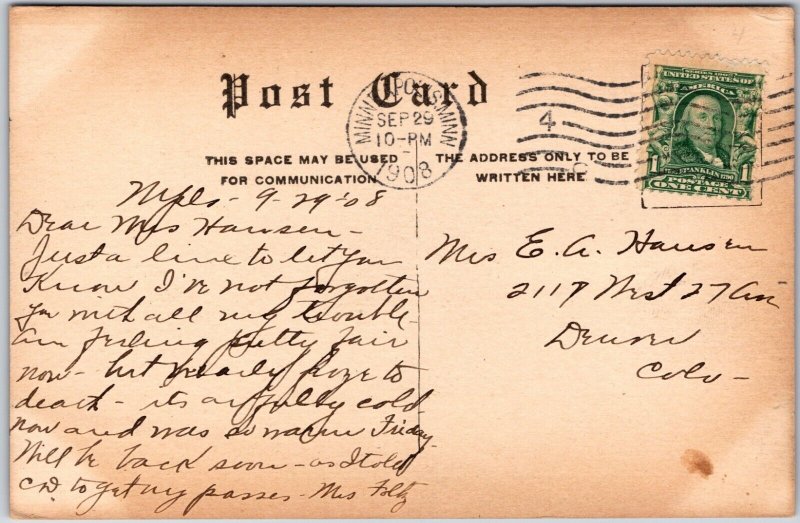 Post Card
MINNEAPOLIS, MINN.
SEP 29
10-PM
1908
4
SERIES 1902
UNITED STATES OF
AMERICA
1 FRANKLIN 1
POSTAGE
ONE CENT
THIS SPACE MAY BE USED
FOR COMMUNICATION
THE ADDRESS ONLY TO BE
WRITTEN HERE
Mpls - 9-29-08
Dear Mrs Hansen -
Just a line to let you
know I've not forgotten
you with all my trouble -
am feeling pretty fair
now - but nearly froze to
death - its awfully cold
now and was so warm Friday.
Will be back soon - as I told
to get my passes - Mrs
Mrs E. A. Hansen
2117 West 27 Ave
Denver
Colo -